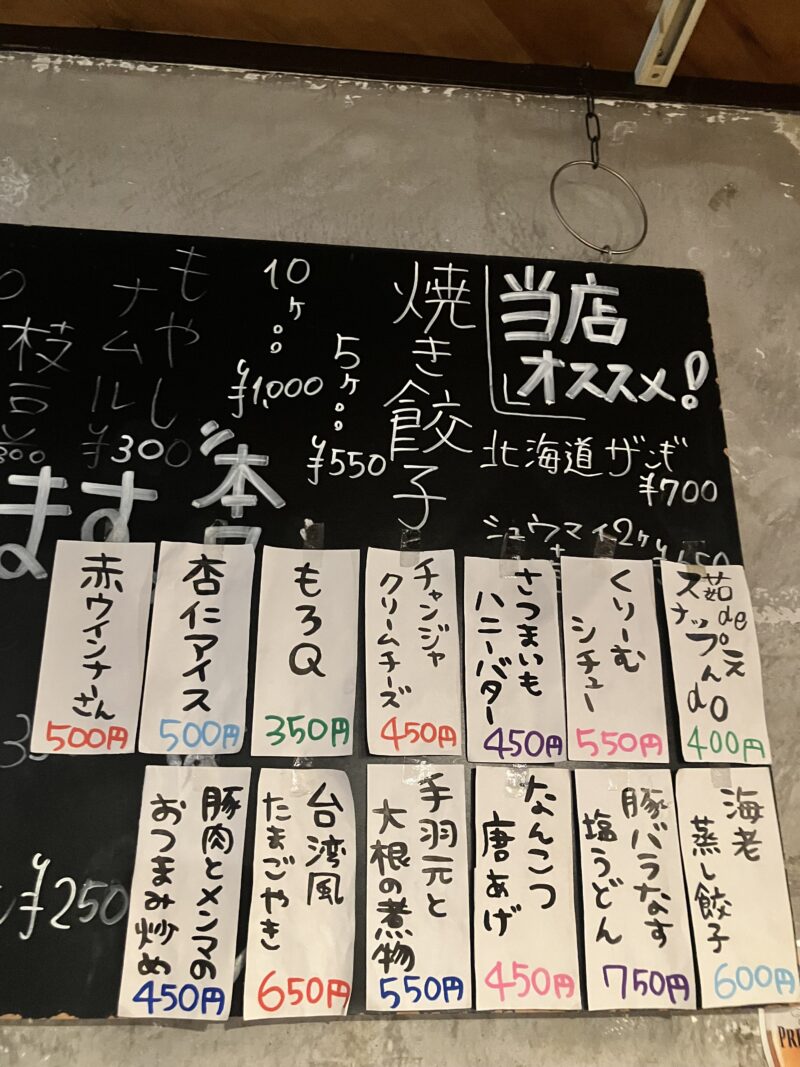 当店
オススメ!
北海道ザンギ
¥700
シュウマイ2ヶ
焼き餃子
5ヶ
¥550
10ヶ
¥1,000
もやし
ナムル
¥300
枝豆
300
ます
本日
茹de
スナップえん
do
400円
くりーむ
シチュー
550円
さつまいも
ハニーバター
450円
チャンジャ
クリームチーズ
450円
もろQ
350円
杏仁アイス
500円
赤ウインナーさん
500円
海老
蒸し餃子
600円
豚バラなす
塩うどん
750円
なんこつ
唐あげ
450円
手羽元と
大根の煮物
550円
台湾風
たまごやき
650円
豚肉とメンマの
おつまみ炒め
450円
¥250